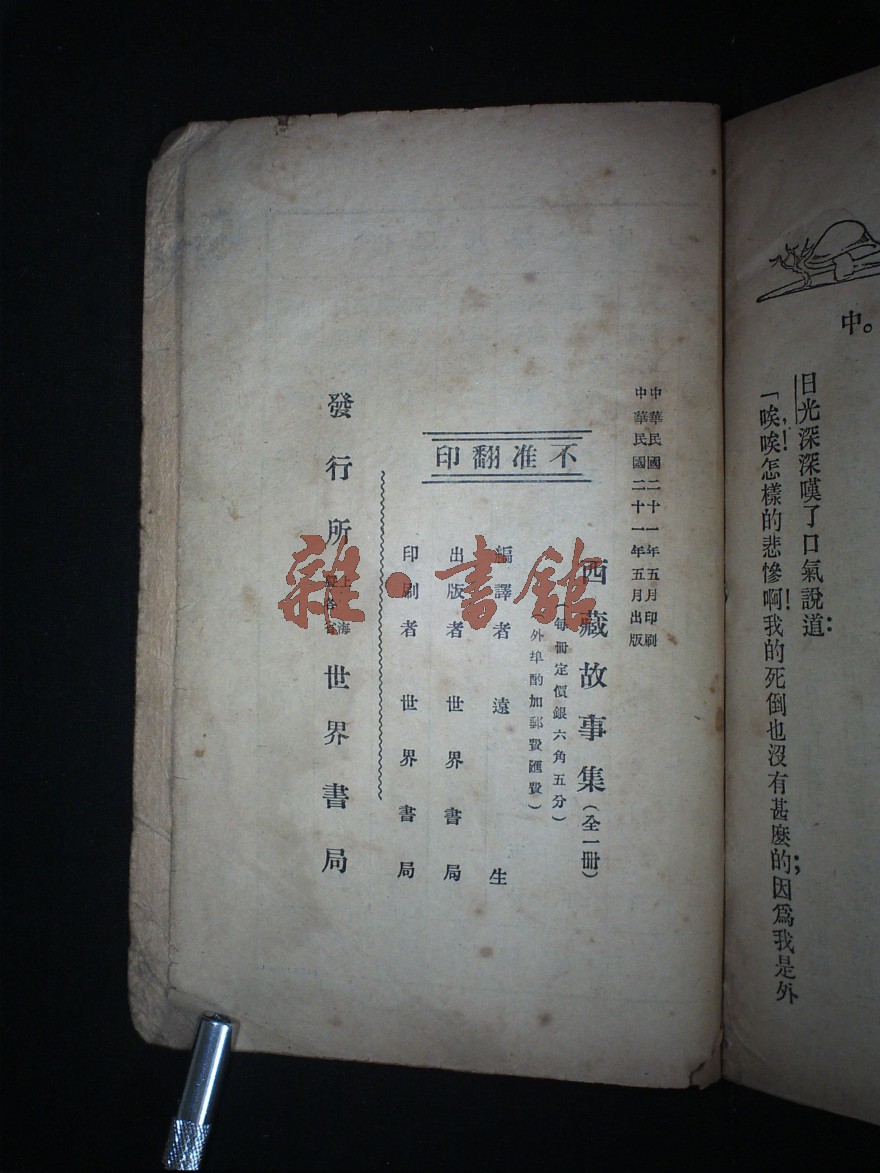 中。
日光深深嘆了口氣說道：
「唉，唉！怎樣的悲慘啊！我的死倒也沒有甚麼的；因爲我是外
中華民國二十一年五月印刷
中華民國二十一年五月出版
西藏故事集（全一冊）
（每冊定價銀六角五分）
外埠酌加郵費匯費）
不准翻印
編譯者 遠生
出版者 世界書局
印刷者 世界書局
發行所 上海 各省 世界書局
雜·書館